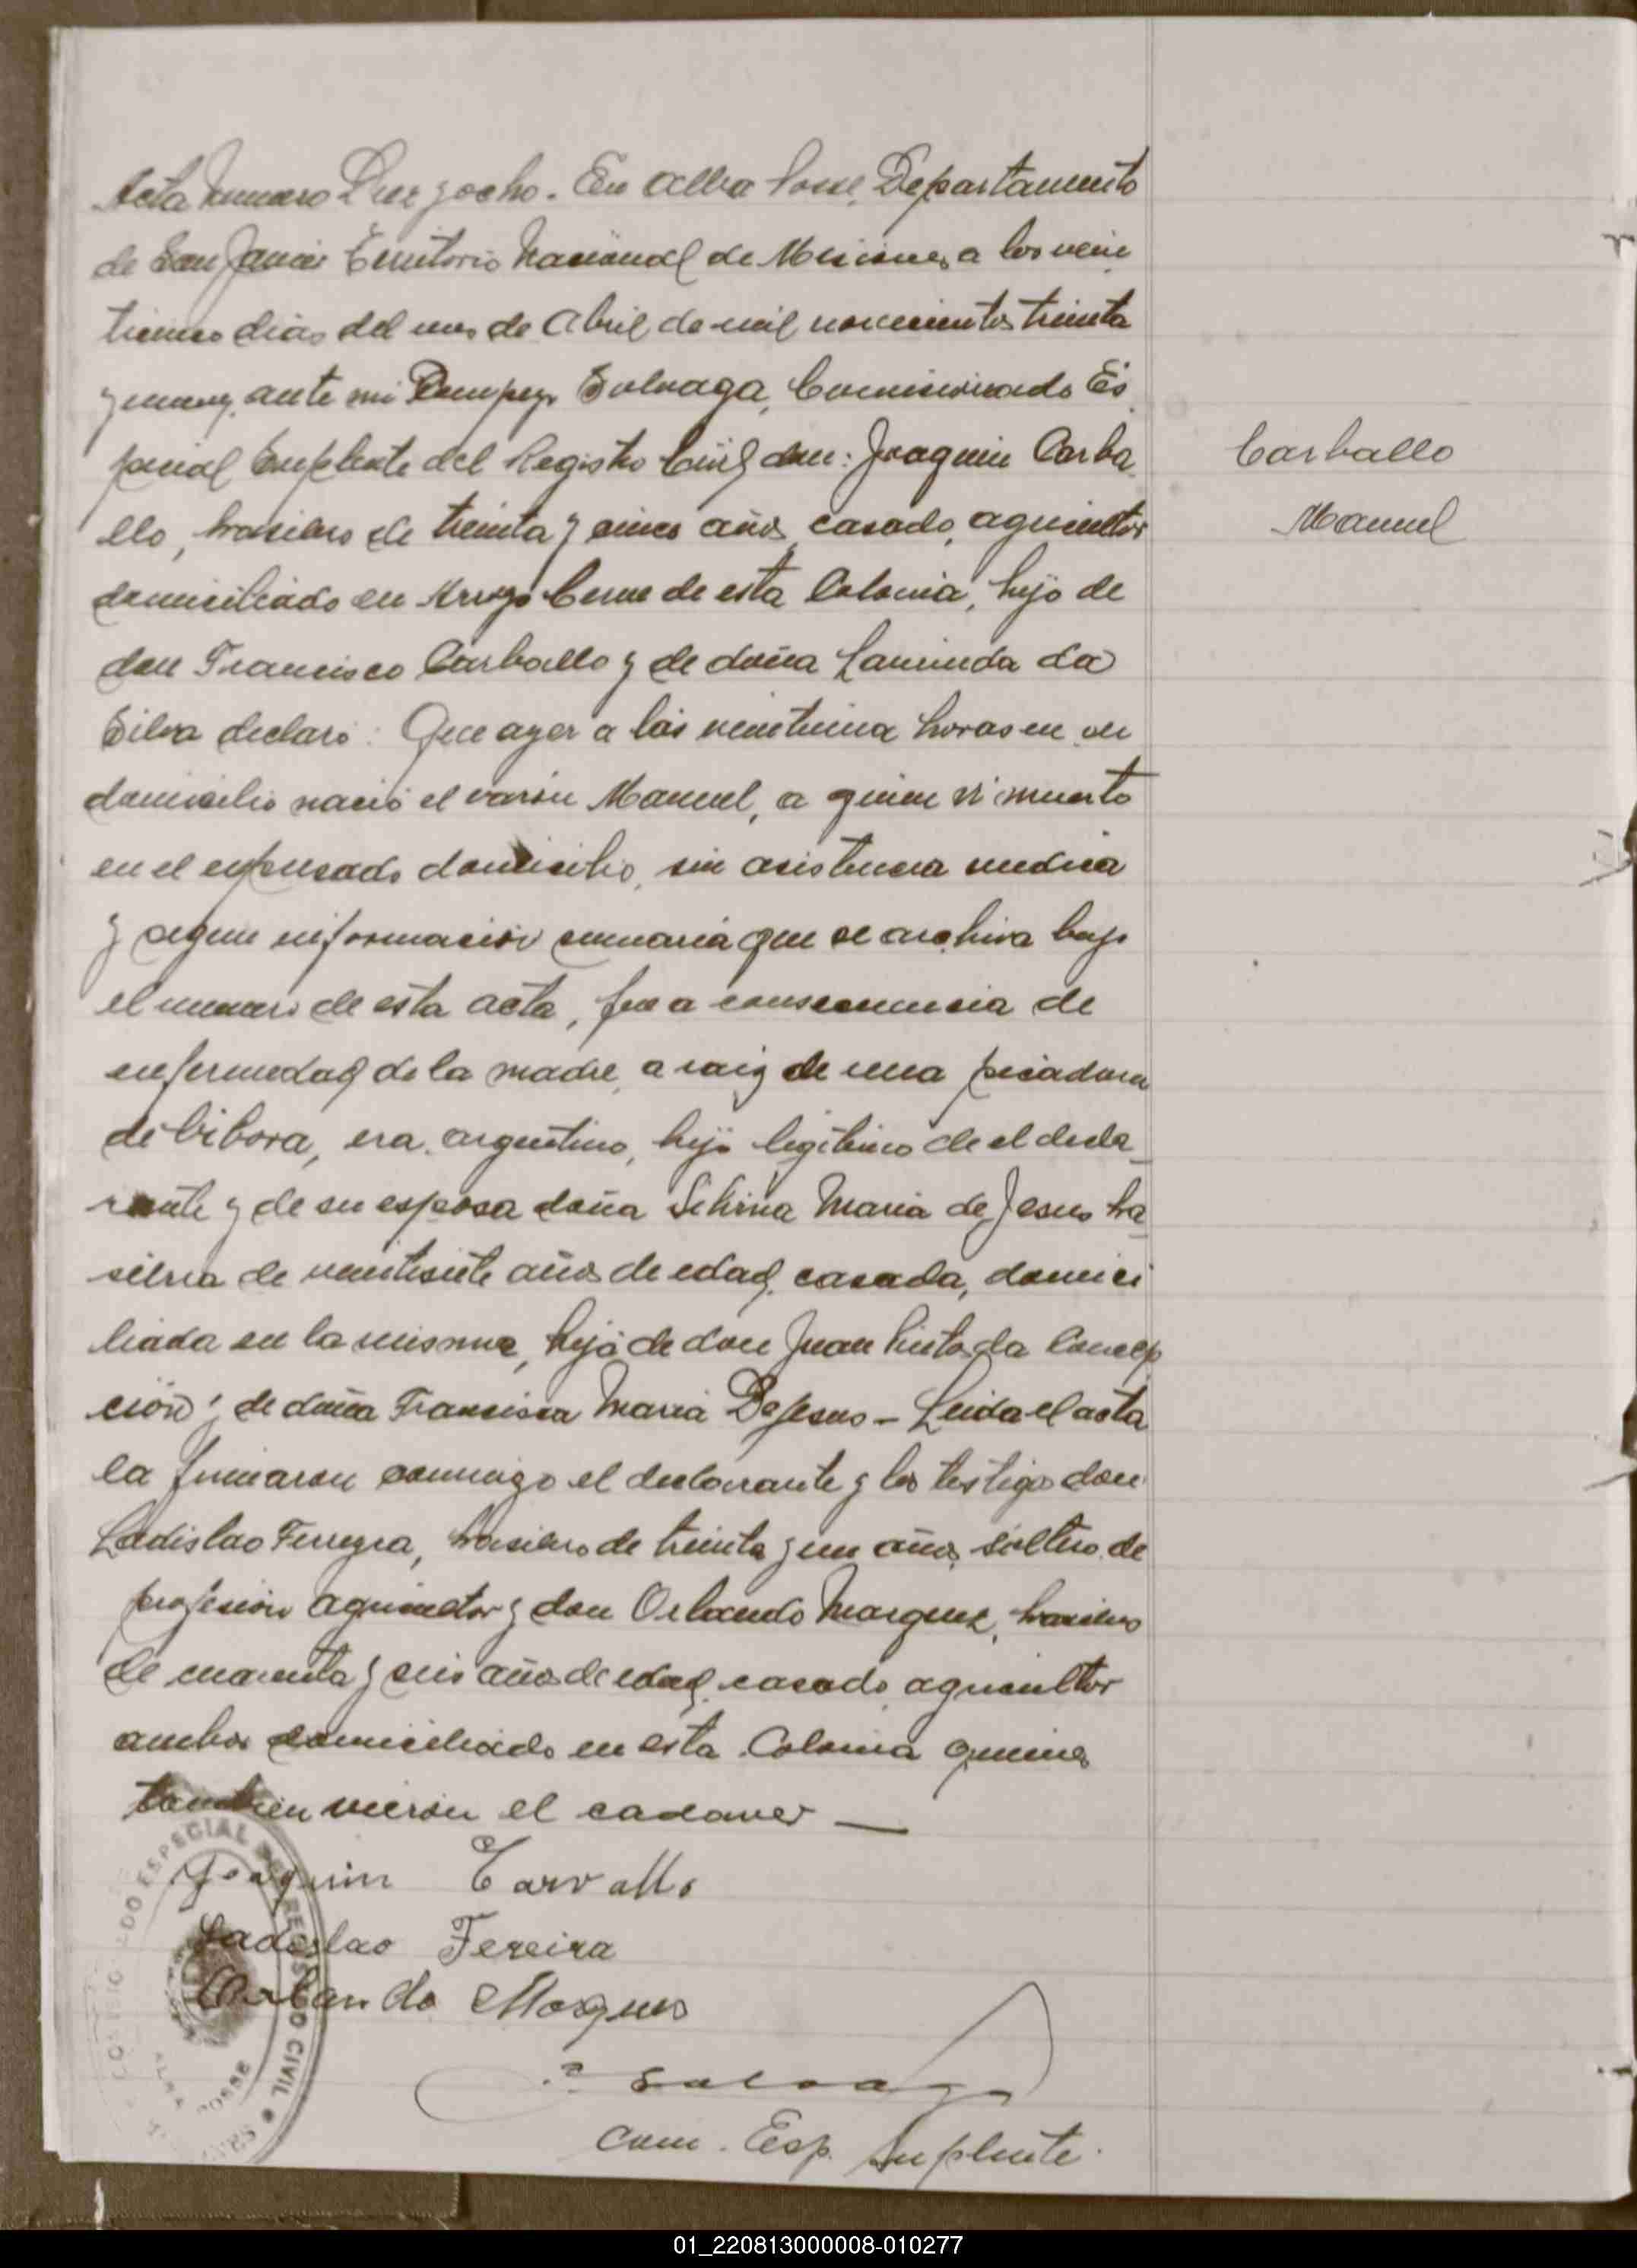 Acta Numero Diez y ocho. En Alba Posse, Departamento
de San Javier Territorio Nacional de Misiones, a los vein
ticinco dias del mes de Abril de mil novecientos treinta
y nueve, ante mi Pompeyo Salvaga, Comisionado Es
pecial Suplente del Registro Civil don: Joaquin Carba
llo, brasilero de treinta y cinco años, casado, agricultor
domiciliado en Arroyo de esta Colonia, hijo de
don Francisco Carballo y de doña Laurinda da
Silva declaró: Que ayer a las veintiuna horas en su
domicilio nació el varón Manuel, a quien vi muerto
en el expresado domicilio, sin asistencia medica
y segun información sumaria que se archiva bajo
el numero de esta acta, fue a consecuencia de
enfermedad de la madre, a raiz de una picadura
de bibora, era argentino, hijo legitimo de el decla_
rante y de su esposa doña Maria de Jesus bra_
silera de veintisiete años de edad, casada, domici
liada en la misma, hija de don Juan da Concep
ción y de doña Francisca Maria De Jesus - Leida el acta
la firmaron conmigo el declarante y los testigos don
Ladislao Ferreyra, brasilero de treinta y un años, soltero, de
profesión agricultor y don Orlando Marquez, brasilero
de cuarenta y seis años de edad, casado, agricultor
ambos domiciliado en esta Colonia quienes
tambien vieron el cadaver —
Carballo
Manuel
Joaquin Carvallo
Ladislao Fereira
Orlando Marques
Salvaga
Com. Esp. Suplente.
ESPECIAL REGISTRO CIVIL
01_220813000008-010277